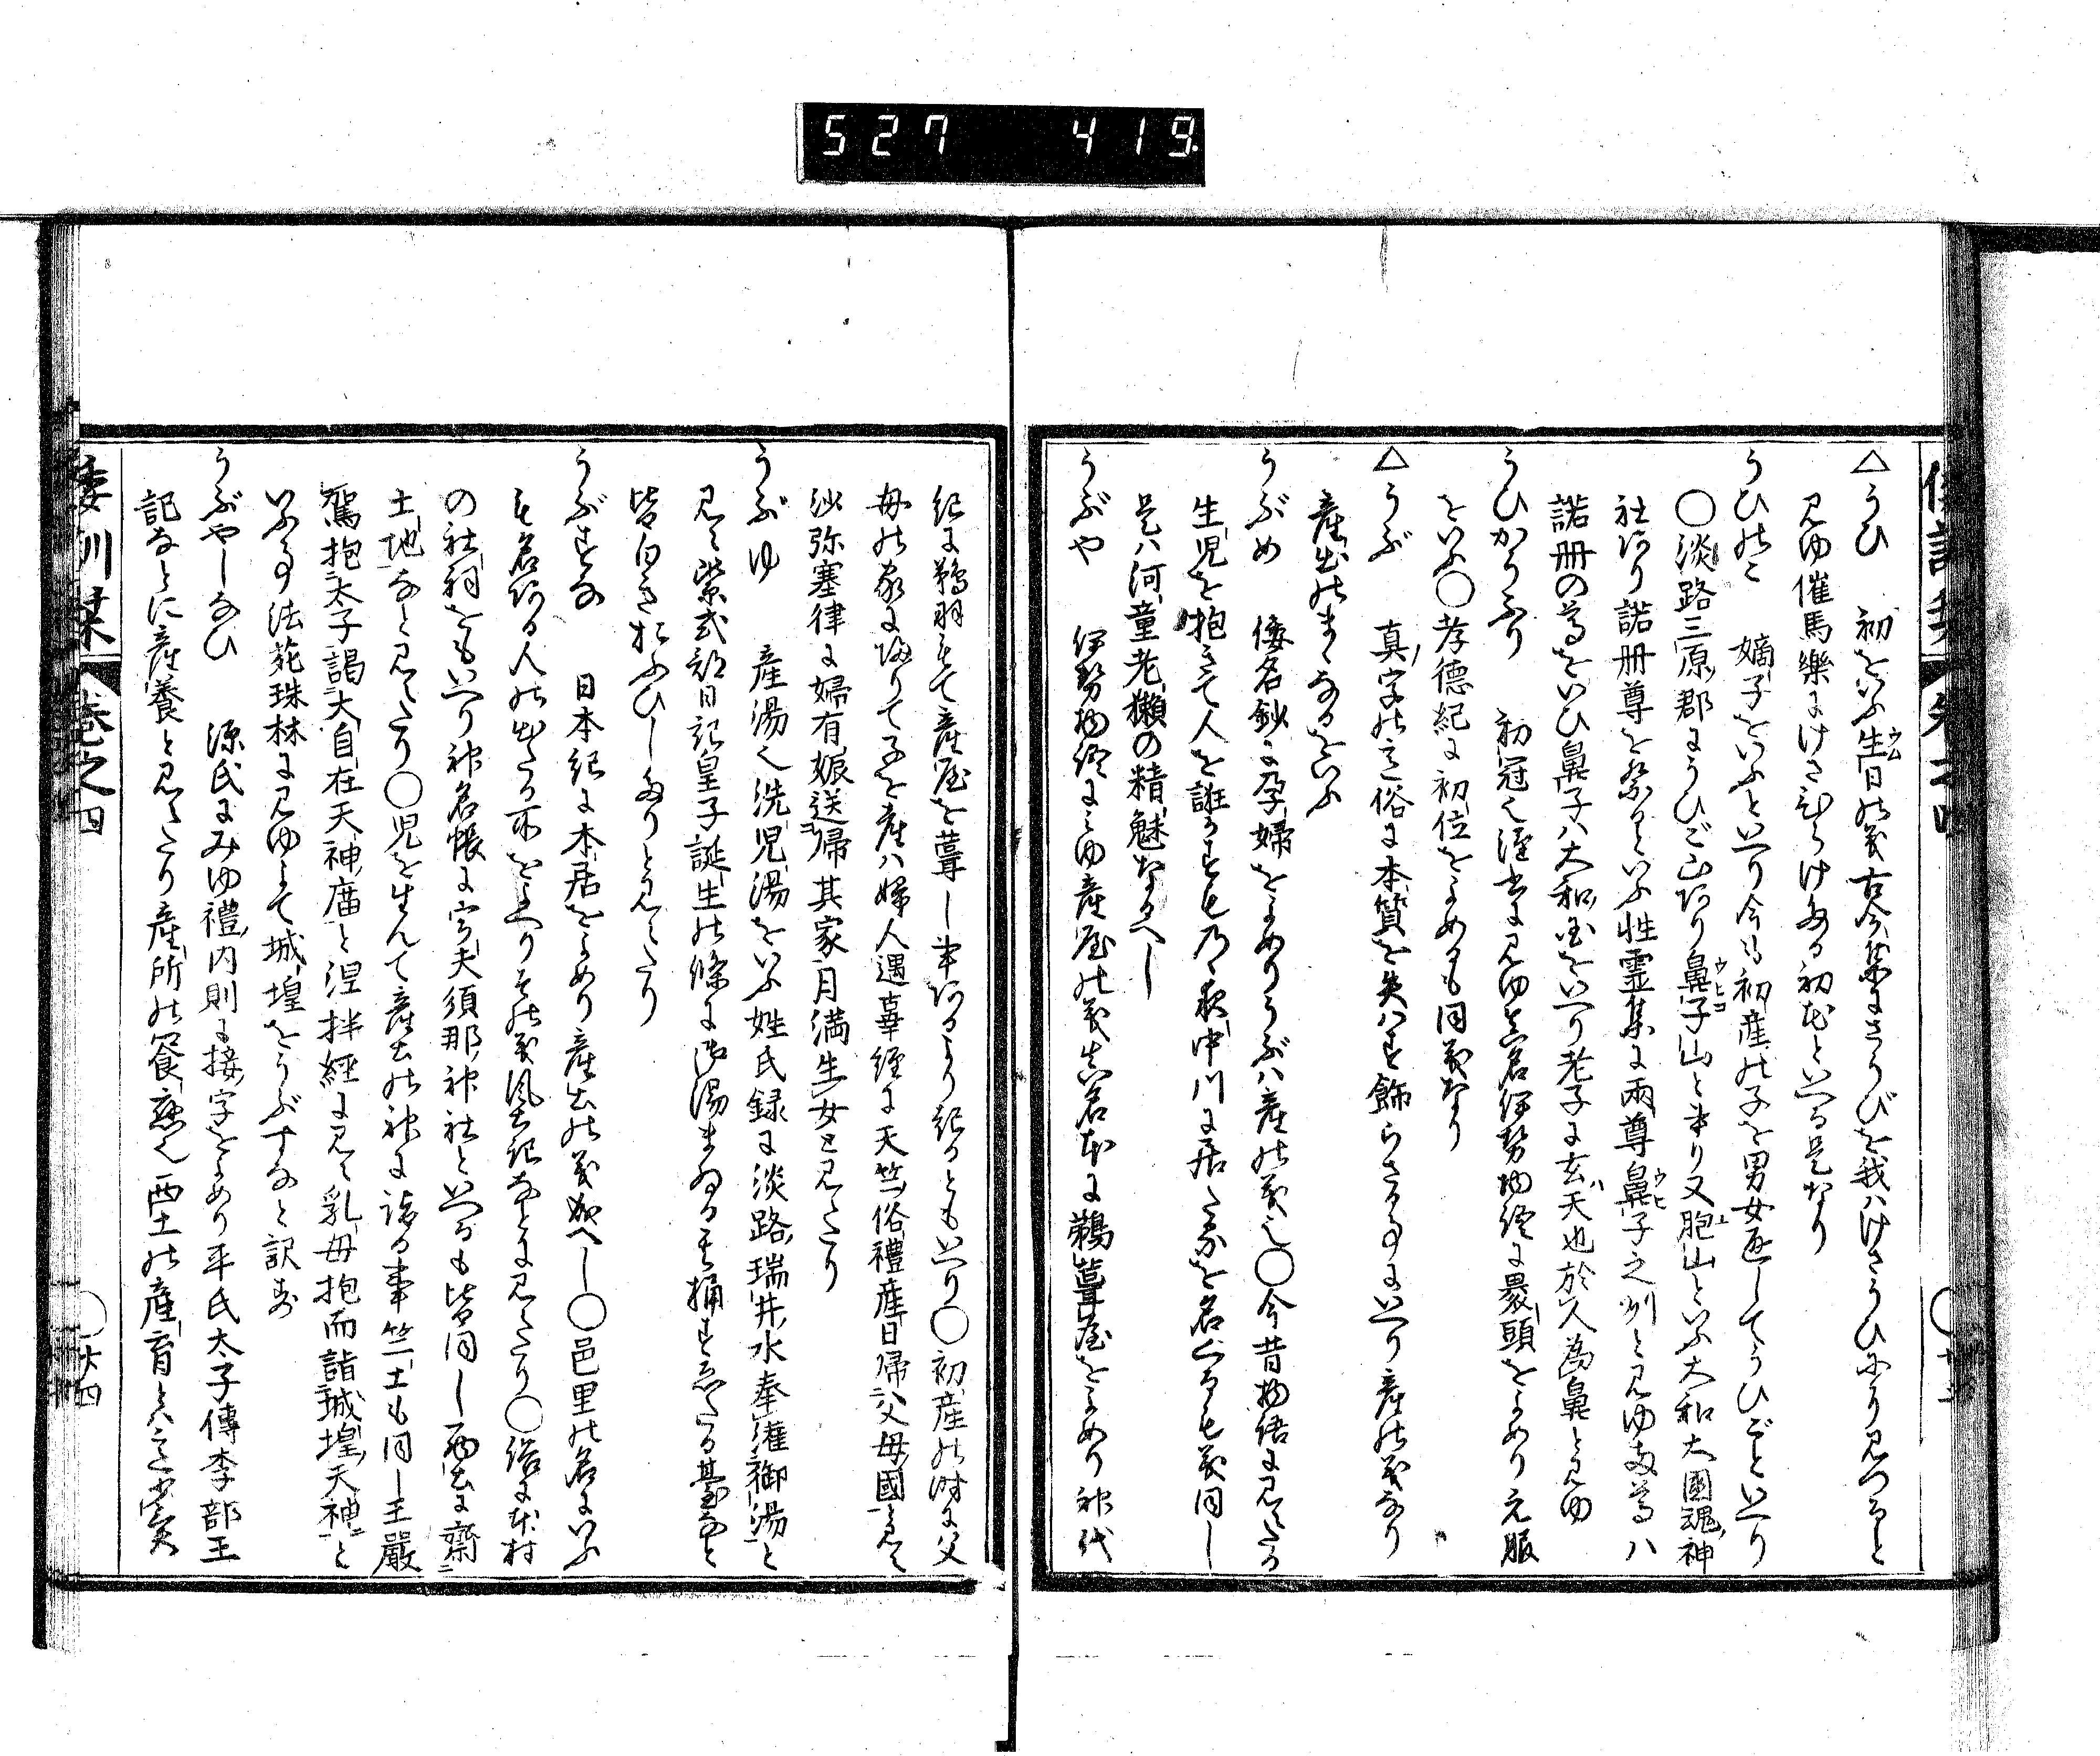 527 419
△うひ 初をいふ生日の義古今集にさうびを我ハけさうひにり見つると
見ゆ催馬樂にけさむらけある初花といへる是なり
うひのこ 嫡子をいふといへり今ハ初産の子を男女通してうひごといへり
○淡路三原郡にうひご山あり鼻子山とかり又胞山といふ大和大國魂神
社あり諾冊尊を祭るといふ性霊集に兩尊鼻子之州と見ゆ
諾冊の尊をいひ鼻子ハ大和國をいへり老子に玄天也於人為鼻と見ゆ
うひかうふり 初冠也漢書に見ゆ真名伊勢物語に褁頭をよめり元服
をいふ○孝德紀に初位をよめるも同義なり
△うぶ 真字の意俗に本質を失ハす飾らさる事にいへり産の義なり
産出のまゝなるをいふ
うぶめ 倭名鈔に孕婦をよめりうぶハ産の義也○今昔物語に見えたる
生児を抱きて人を誑らすも乃夜中川に居たるを名くるも義同し
是ハ河童老獺の精魅なるへし
うぶや 伊勢物語にみゆ産屋の義真名本に鵜葺屋をよめり神代
紀に鵜羽もて産屋を葺し事あるより起るともいへり○初産の時に父
母の家に歸りて子を産ハ婦人遇辜経に天竺俗禮産日帰父母國と見え
沙弥塞律に婦有娠送帰其家月満生女と見えたり
うぶゆ 産湯也洗児湯をいふ姓氏録に淡路瑞井水奉灌御湯と
見え紫式部日記皇子誕生の條に御湯まゐる其桶すゑたる臺なと
皆白きおほひしたりと見えたり
うぶすな 日本紀に本居をよめり産出の義成へし○邑里の名にいふ
も名ある人の出たる所をいへりその義風土記なとに見えたり○俗に本村
の社祠をもいへり神名帳に宇夫須那神社といへるも皆同し西土に齋
土地なと見えたり○児を生んて産土の神に詣る事竺土も同し王嚴
駕抱太子謁大自在天神廟と涅拌經に見え乳母抱而詣城隍天神と
いふ事法苑珠林に見ゆよて城隍をうぶすなと訳す
うぶやしなひ 源氏にみゆ禮内則に接字をよめり平氏太子傳李部王
記なとに産養と見えたり産所の饗應也西土の産育といへる意実
倭訓栞 巻之四 ○廿四